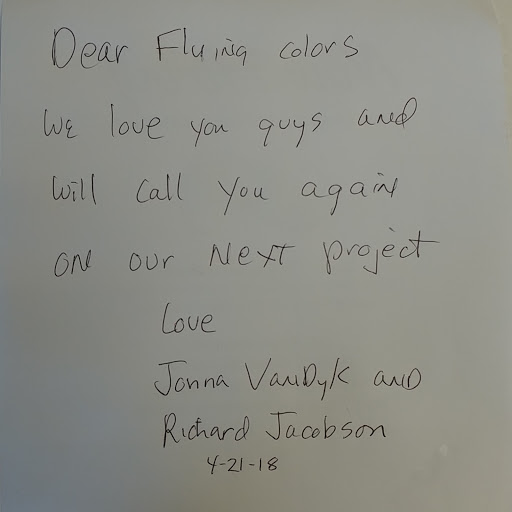 Dear Flying colors
We love you guys and
will call you again
on our Next project
Love
Jonna VanDyk and
Richard Jacobson
4-21-18